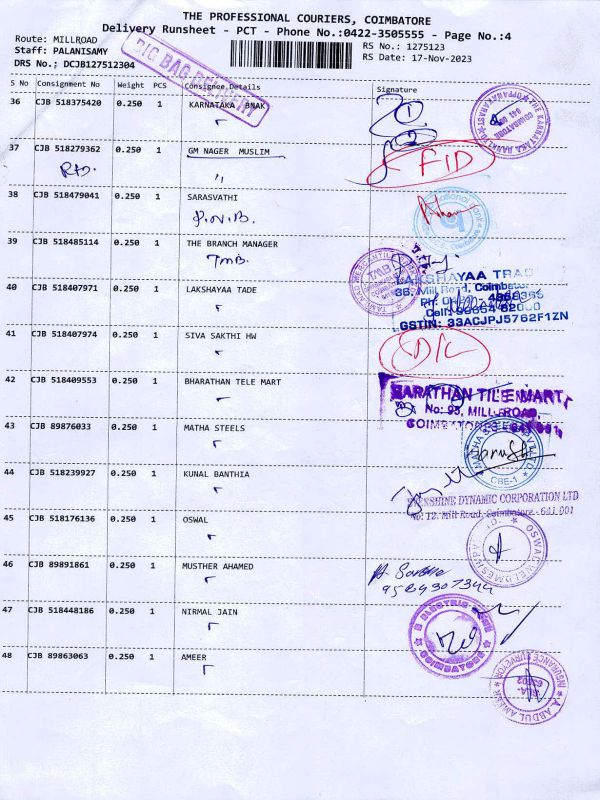 THE PROFESSIONAL COURIERS, COIMBATORE
Delivery Runsheet - PCT - Phone No.:0422-3505555 - Page No.:4
Route: MILLROAD
Staff: PALANISAMY
DRS No.: DCJB127512304
RS No.: 1275123
RS Date: 17-Nov-2023
BIG BAG
S No Consignment No Weight PCS Consignee Details Signature
36 CJB 518375420 0.250 1 KARNATAKA BNAK
37 CJB 518279362 0.250 1 GM NAGER MUSLIM
38 CJB 518479041 0.250 1 SARASVATHI
39 CJB 518485114 0.250 1 THE BRANCH MANAGER
TMB.
TMB
40 CJB 518407971 0.250 1 LAKSHAYAA TADE
LAKSHAYAA TRAD
36, Mill Road, Coimbator
GSTIN: 33ACJPJ5762F1ZN
41 CJB 518407974 0.250 1 SIVA SAKTHI HW
D/L
42 CJB 518409553 0.250 1 BHARATHAN TELE MART
BARATHAN TILE MART,
No: 93, MILL ROAD,
43 CJB 89876033 0.250 1 MATHA STEELS
CBE-1
44 CJB 518239927 0.250 1 KUNAL BANTHIA
SUNSHINE DYNAMIC CORPORATION LTD
No: 12, Mill Road, Coimbatore - 641 001
45 CJB 518176136 0.250 1 OSWAL
46 CJB 89891861 0.250 1 MUSTHER AHAMED
47 CJB 518448186 0.250 1 NIRMAL JAIN
COIMBATORE
48 CJB 89863063 0.250 1 AMEER
INSURANCE SURVEYOR